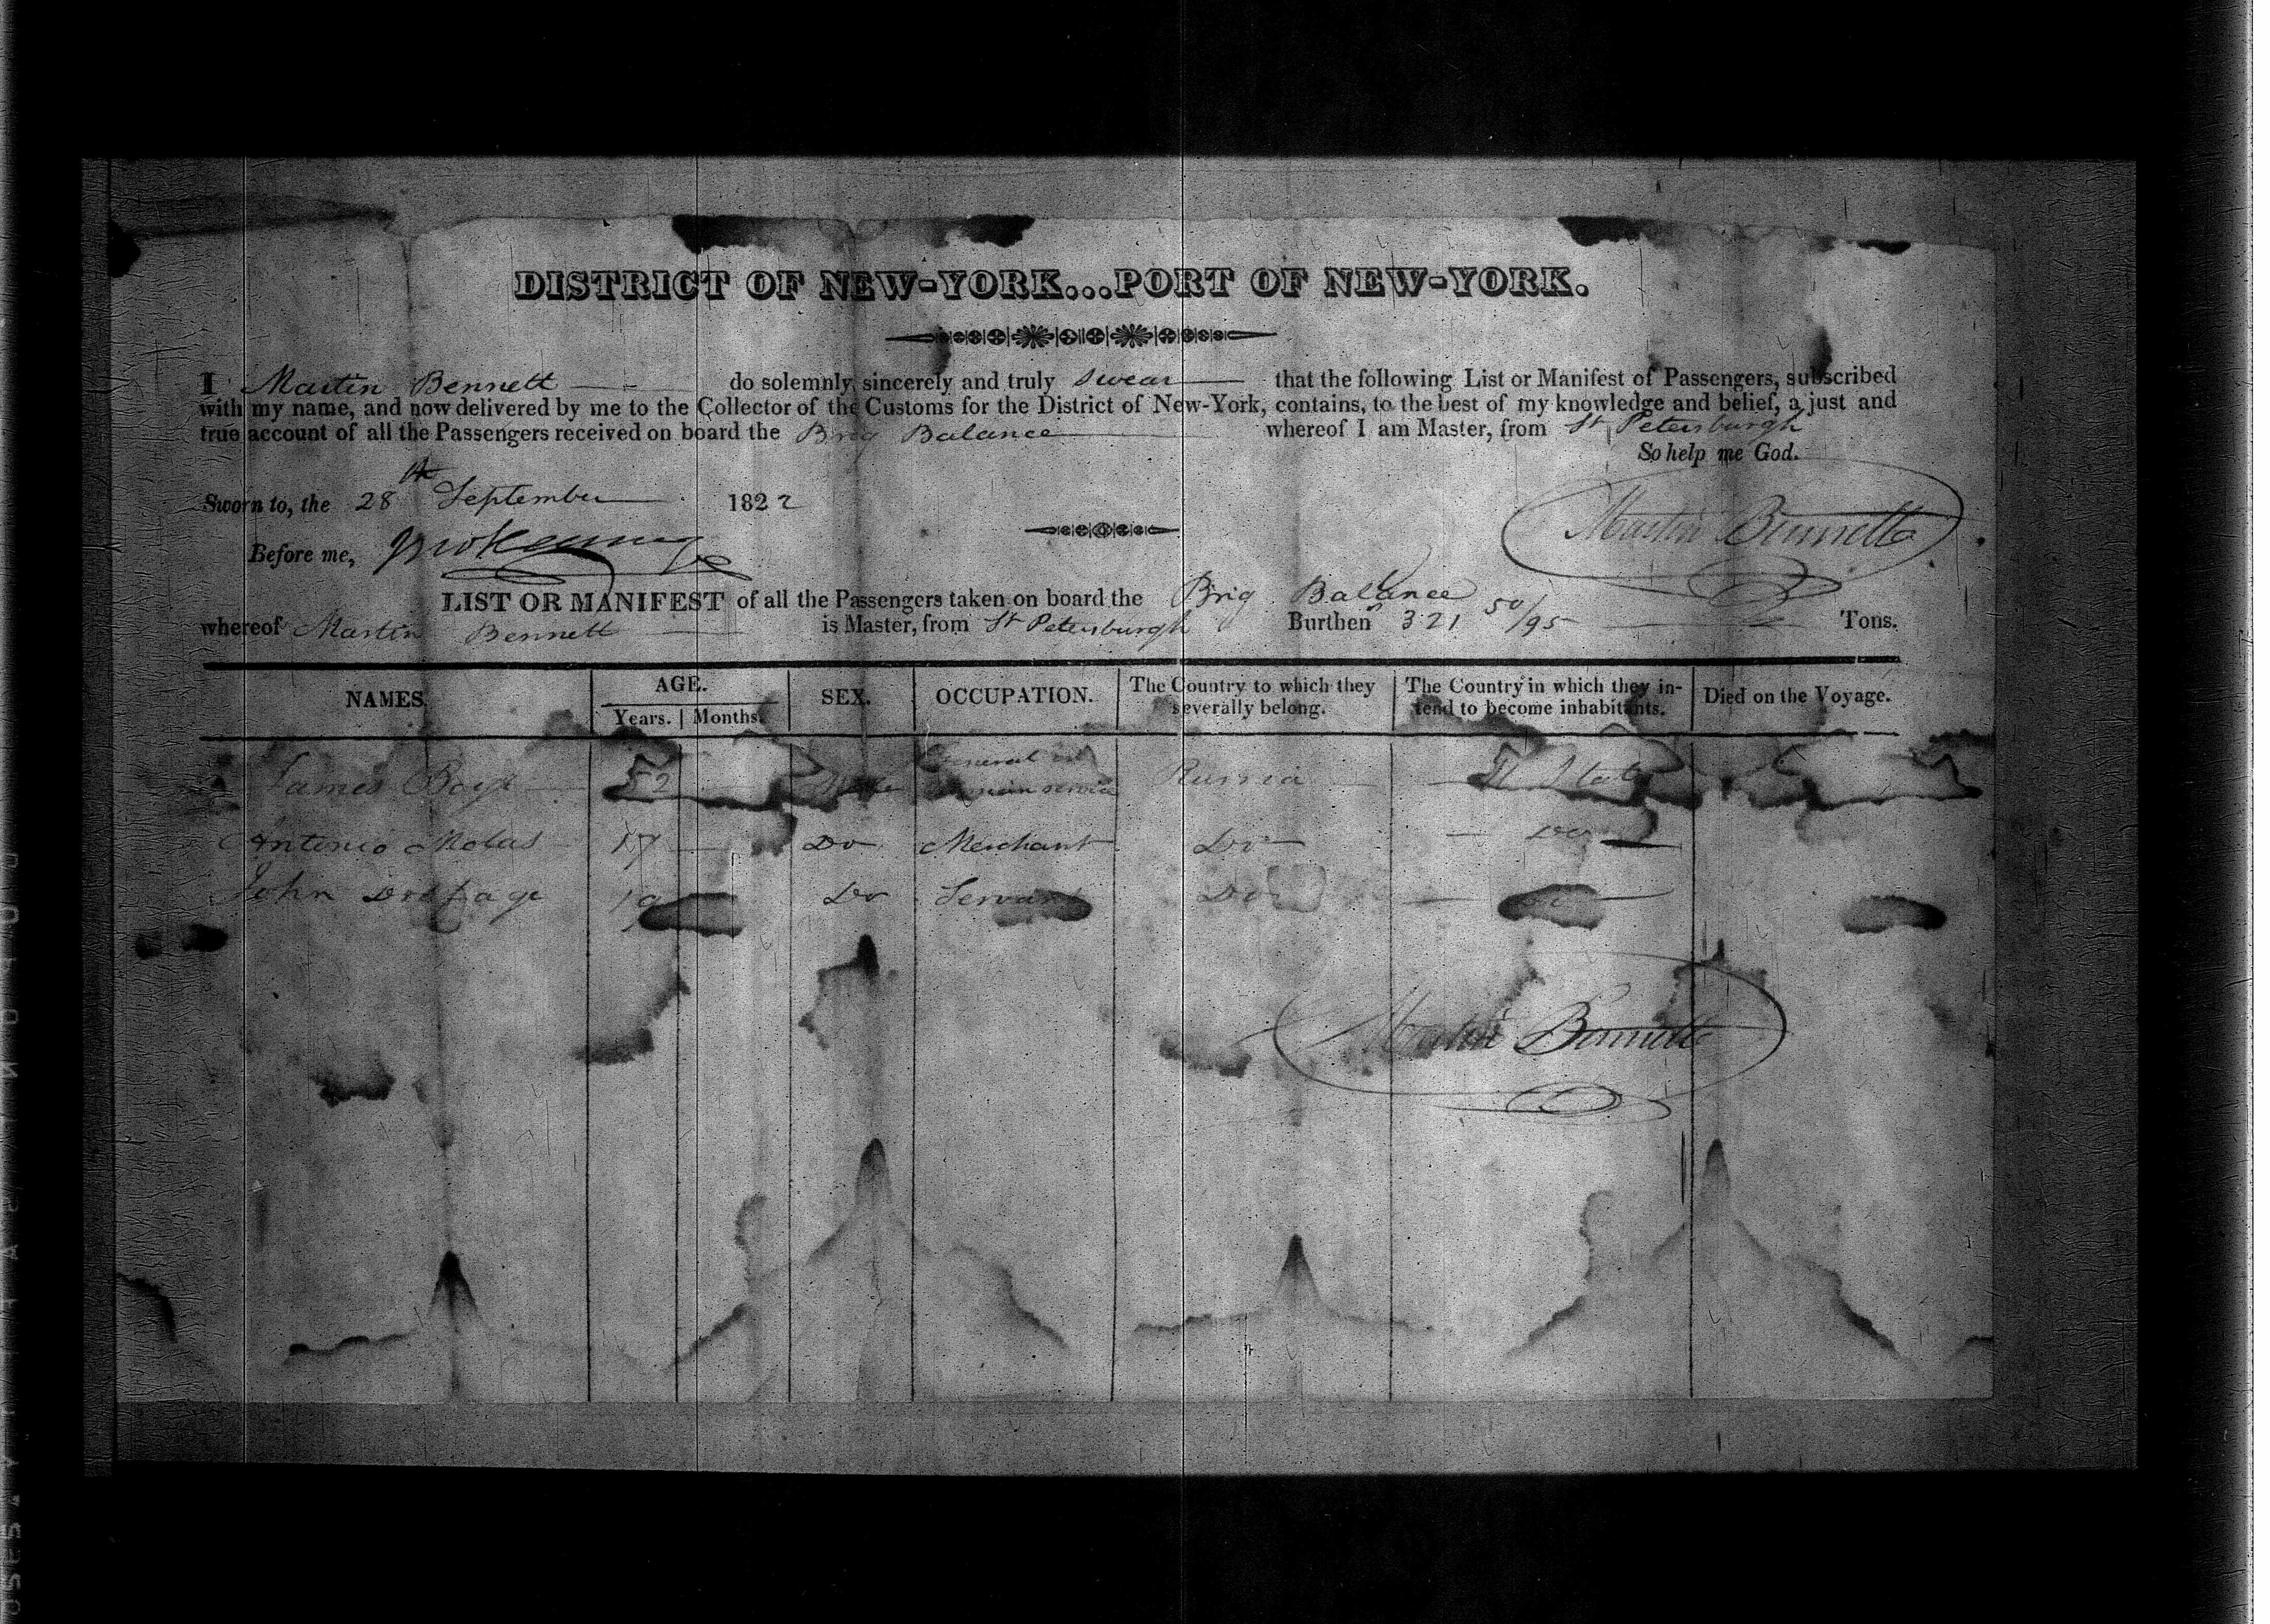 DISTRICT OF NEW-YORK...PORT OF NEW-YORK.
I Martin Bennett do solemnly, sincerely and truly swear that the following List or Manifest of Passengers, subscribed
with my name, and now delivered by me to the Collector of the Customs for the District of New-York, contains, to the best of my knowledge and belief, a just and
true account of all the Passengers received on board the Brig Balance whereof I am Master, from St Petersburgh
So help me God.
Sworn to, the 28th September 1822
Martin Bennett
Before me,
LIST OR MANIFEST of all the Passengers taken on board the Brig Balance
whereof Martin Bennett is Master, from St Petersburgh Burthen 321 50/95 Tons.
NAMES. AGE. SEX. OCCUPATION. The Country to which they severally belong. The Country in which they intend to become inhabitants. Died on the Voyage.
Years. Months.
James 52 Male General in service Russia U States
Antonio 17 Do Merchant Do Do
John 19 Do Servant Do Do
Martin Bennett